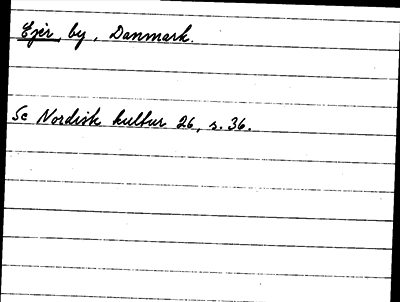 Ejer, by, Danmark.
Se Nordisk kultur 26, s. 36.